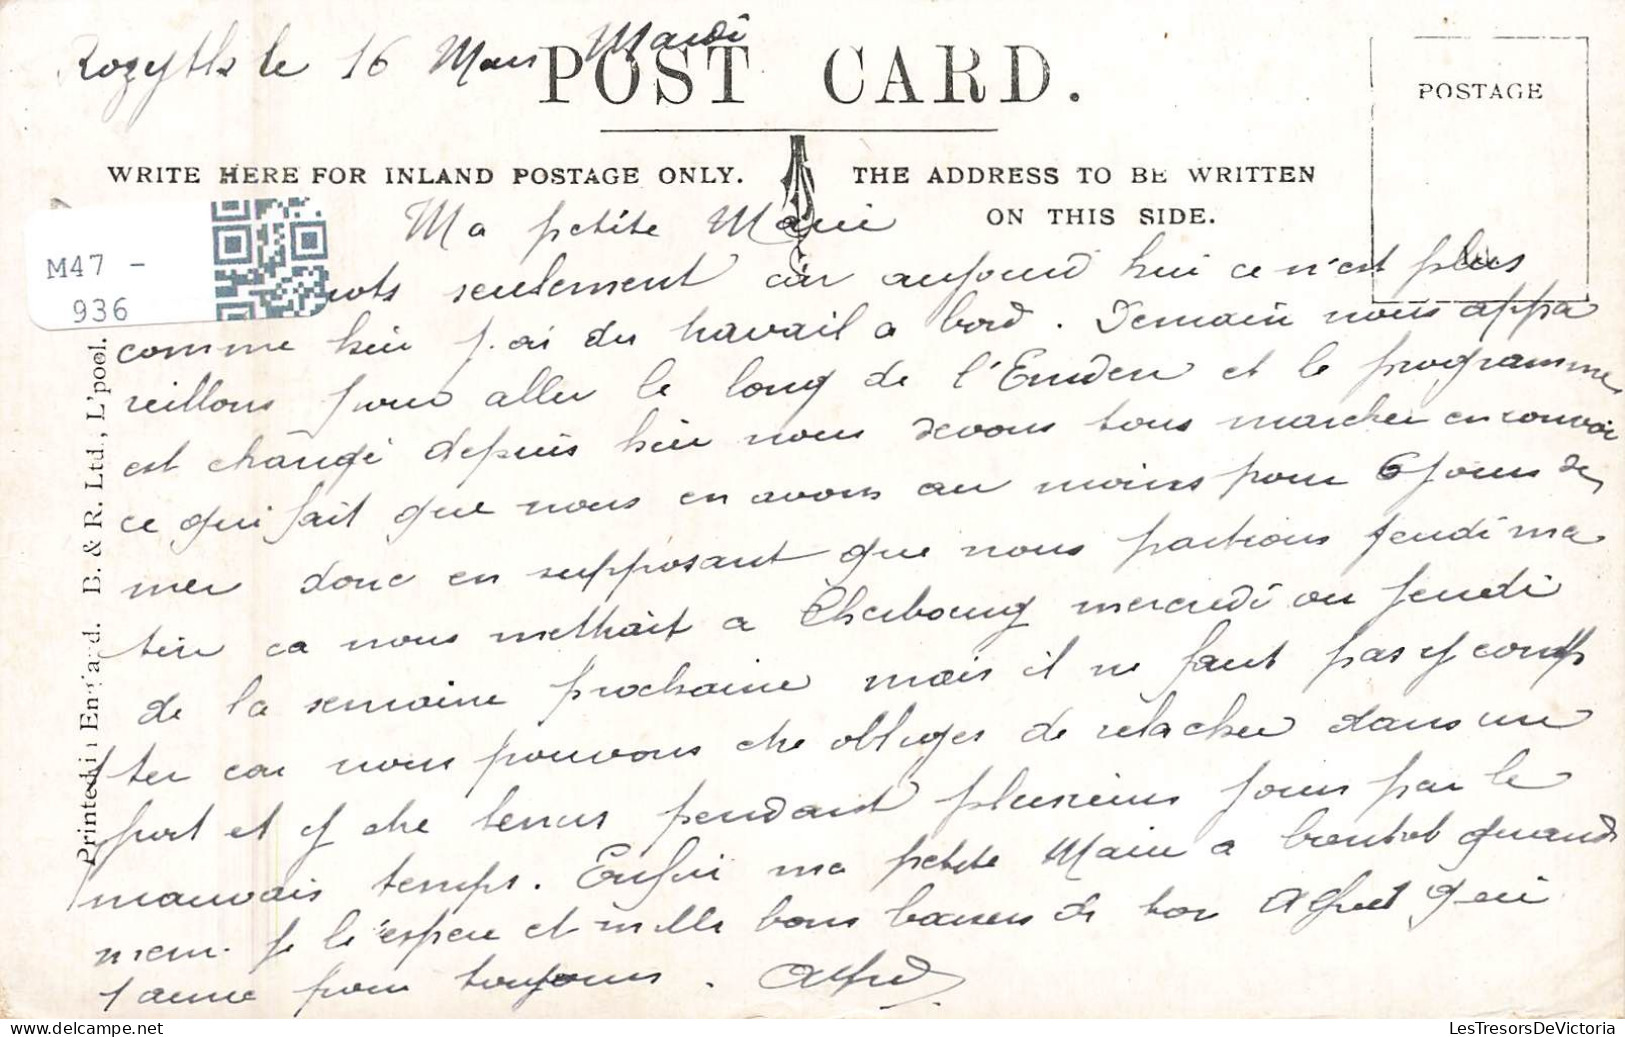 Rozyths le 16 Mars Mardi
POST CARD.
POSTAGE
WRITE HERE FOR INLAND POSTAGE ONLY.
THE ADDRESS TO BE WRITTEN
ON THIS SIDE.
M47 -
936
Printed in England. B. & R. Ltd., L'pool.
Ma petite Marie
mots seulement car aujourd hui ce n'est plus
comme hier j.ai du travail a bord. Demain nous appa
reillons pour aller le long de l'Emden et le programme
est changé depuis hier nous devons tous marcher en convoi
ce qui fait que nous en avons au moins pour 6 jours de
mer donc en supposant que nous partions jeudi ma
tin ca nous mettrait a Cherbourg mercredi ou jeudi
de la semaine prochaine mais il ne faut pas y comp
ter car nous pouvons etre obliges de relacher dans un
port et y etre tenus pendant plusieurs jours par le
mauvais temps. Enfin ma petite Marie a bientot quand
meme je l'espere et mille bons baisers de ton Alfred qui
t'aime pour toujours. Alfred
LesTresorsDeVictoria
https://www.delcampe.net